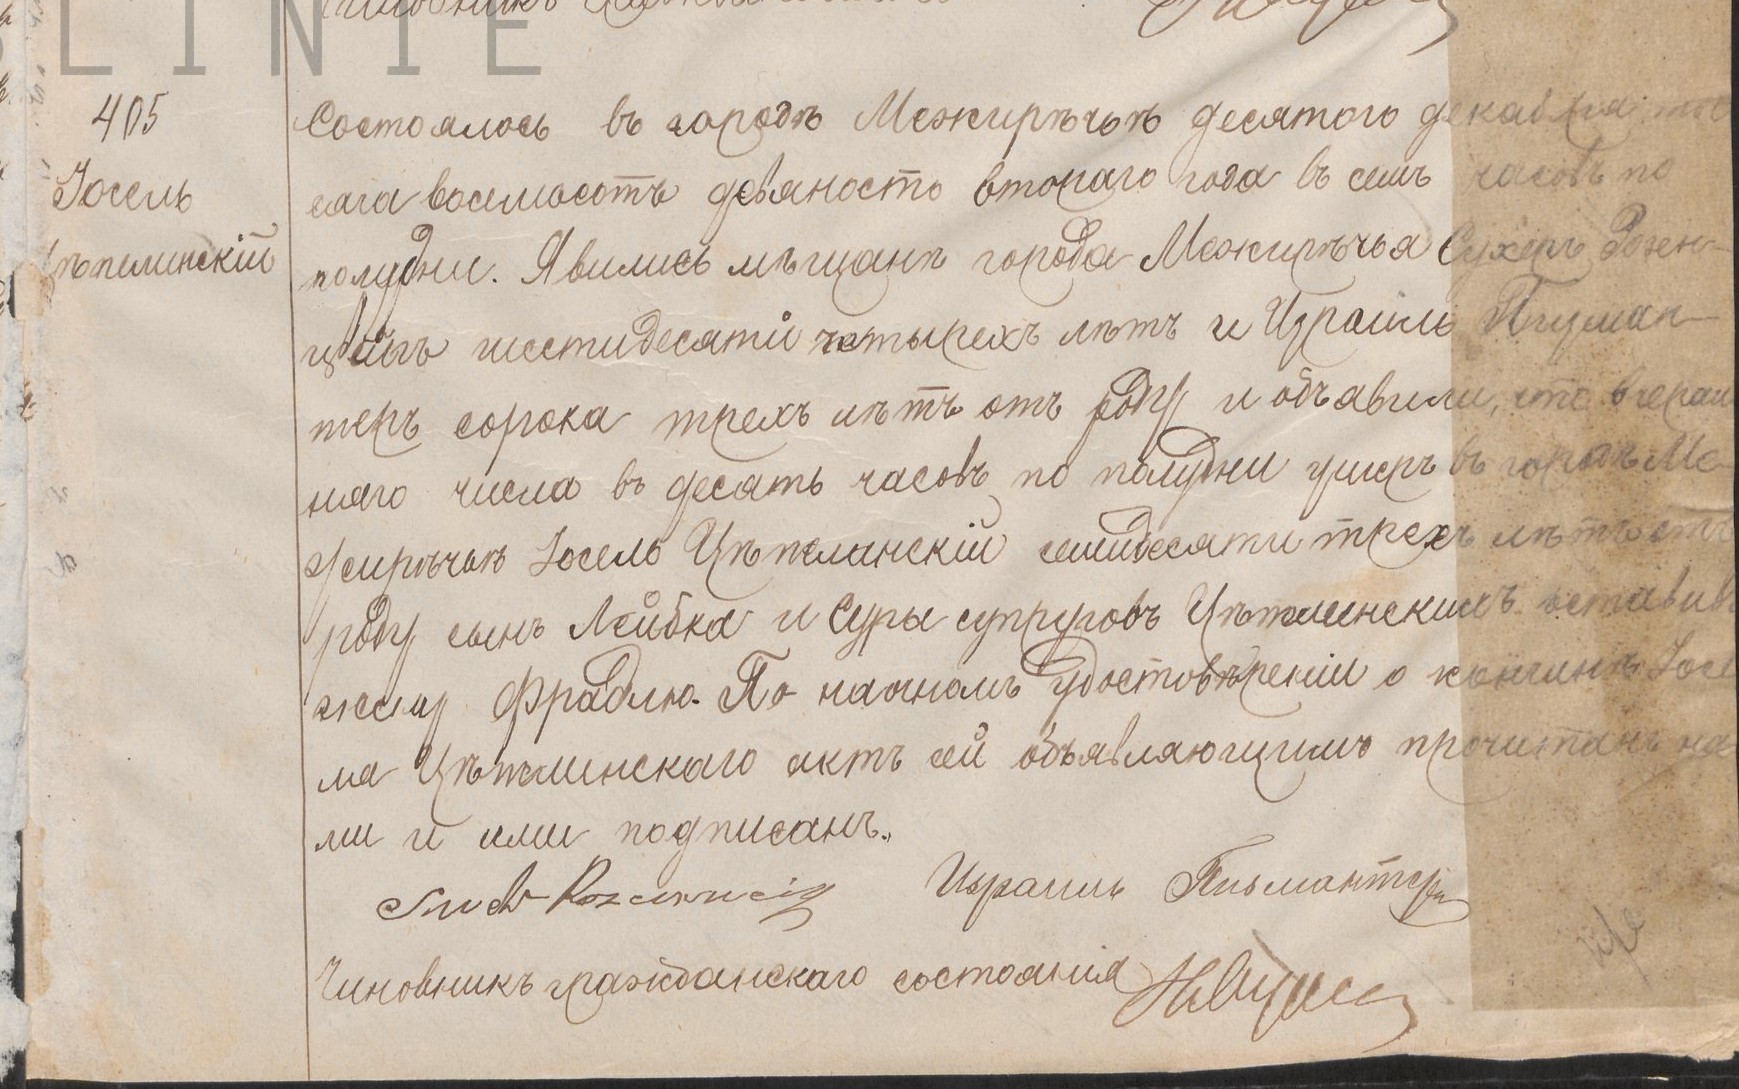 LINIE
405
Іосель
Цѣпелинскій
Состоялось въ городѣ Межирѣчьѣ десятого декабря ты
сяча восемьсотъ девяность втораго года въ семь часовъ по
полудни. Явились мѣщане города Межирѣчья Сухеръ Розен-
цвейгъ шестидесяти четырехъ лѣтъ и Израиль Писман-
теръ сорока трехъ лѣтъ отъ роду и объявили, что вчераш
няго числа въ десять часовъ по полудни умеръ въ городѣ Ме-
жирѣчьѣ Іосель Цѣпелинскій семидесяти трехъ лѣтъ отъ
роду сынъ Лейбка и Суры супруговъ Цѣпелинскихъ оставивъ
жену Фрадлю. По наочномъ удостовѣреніи о кончинѣ Іосе
ля Цѣпелинскаго актъ сей объявляющимъ прочитанъ на
ми и ими подписанъ.
Израиль Письмантеръ
Чиновникъ гражданскаго состоянія